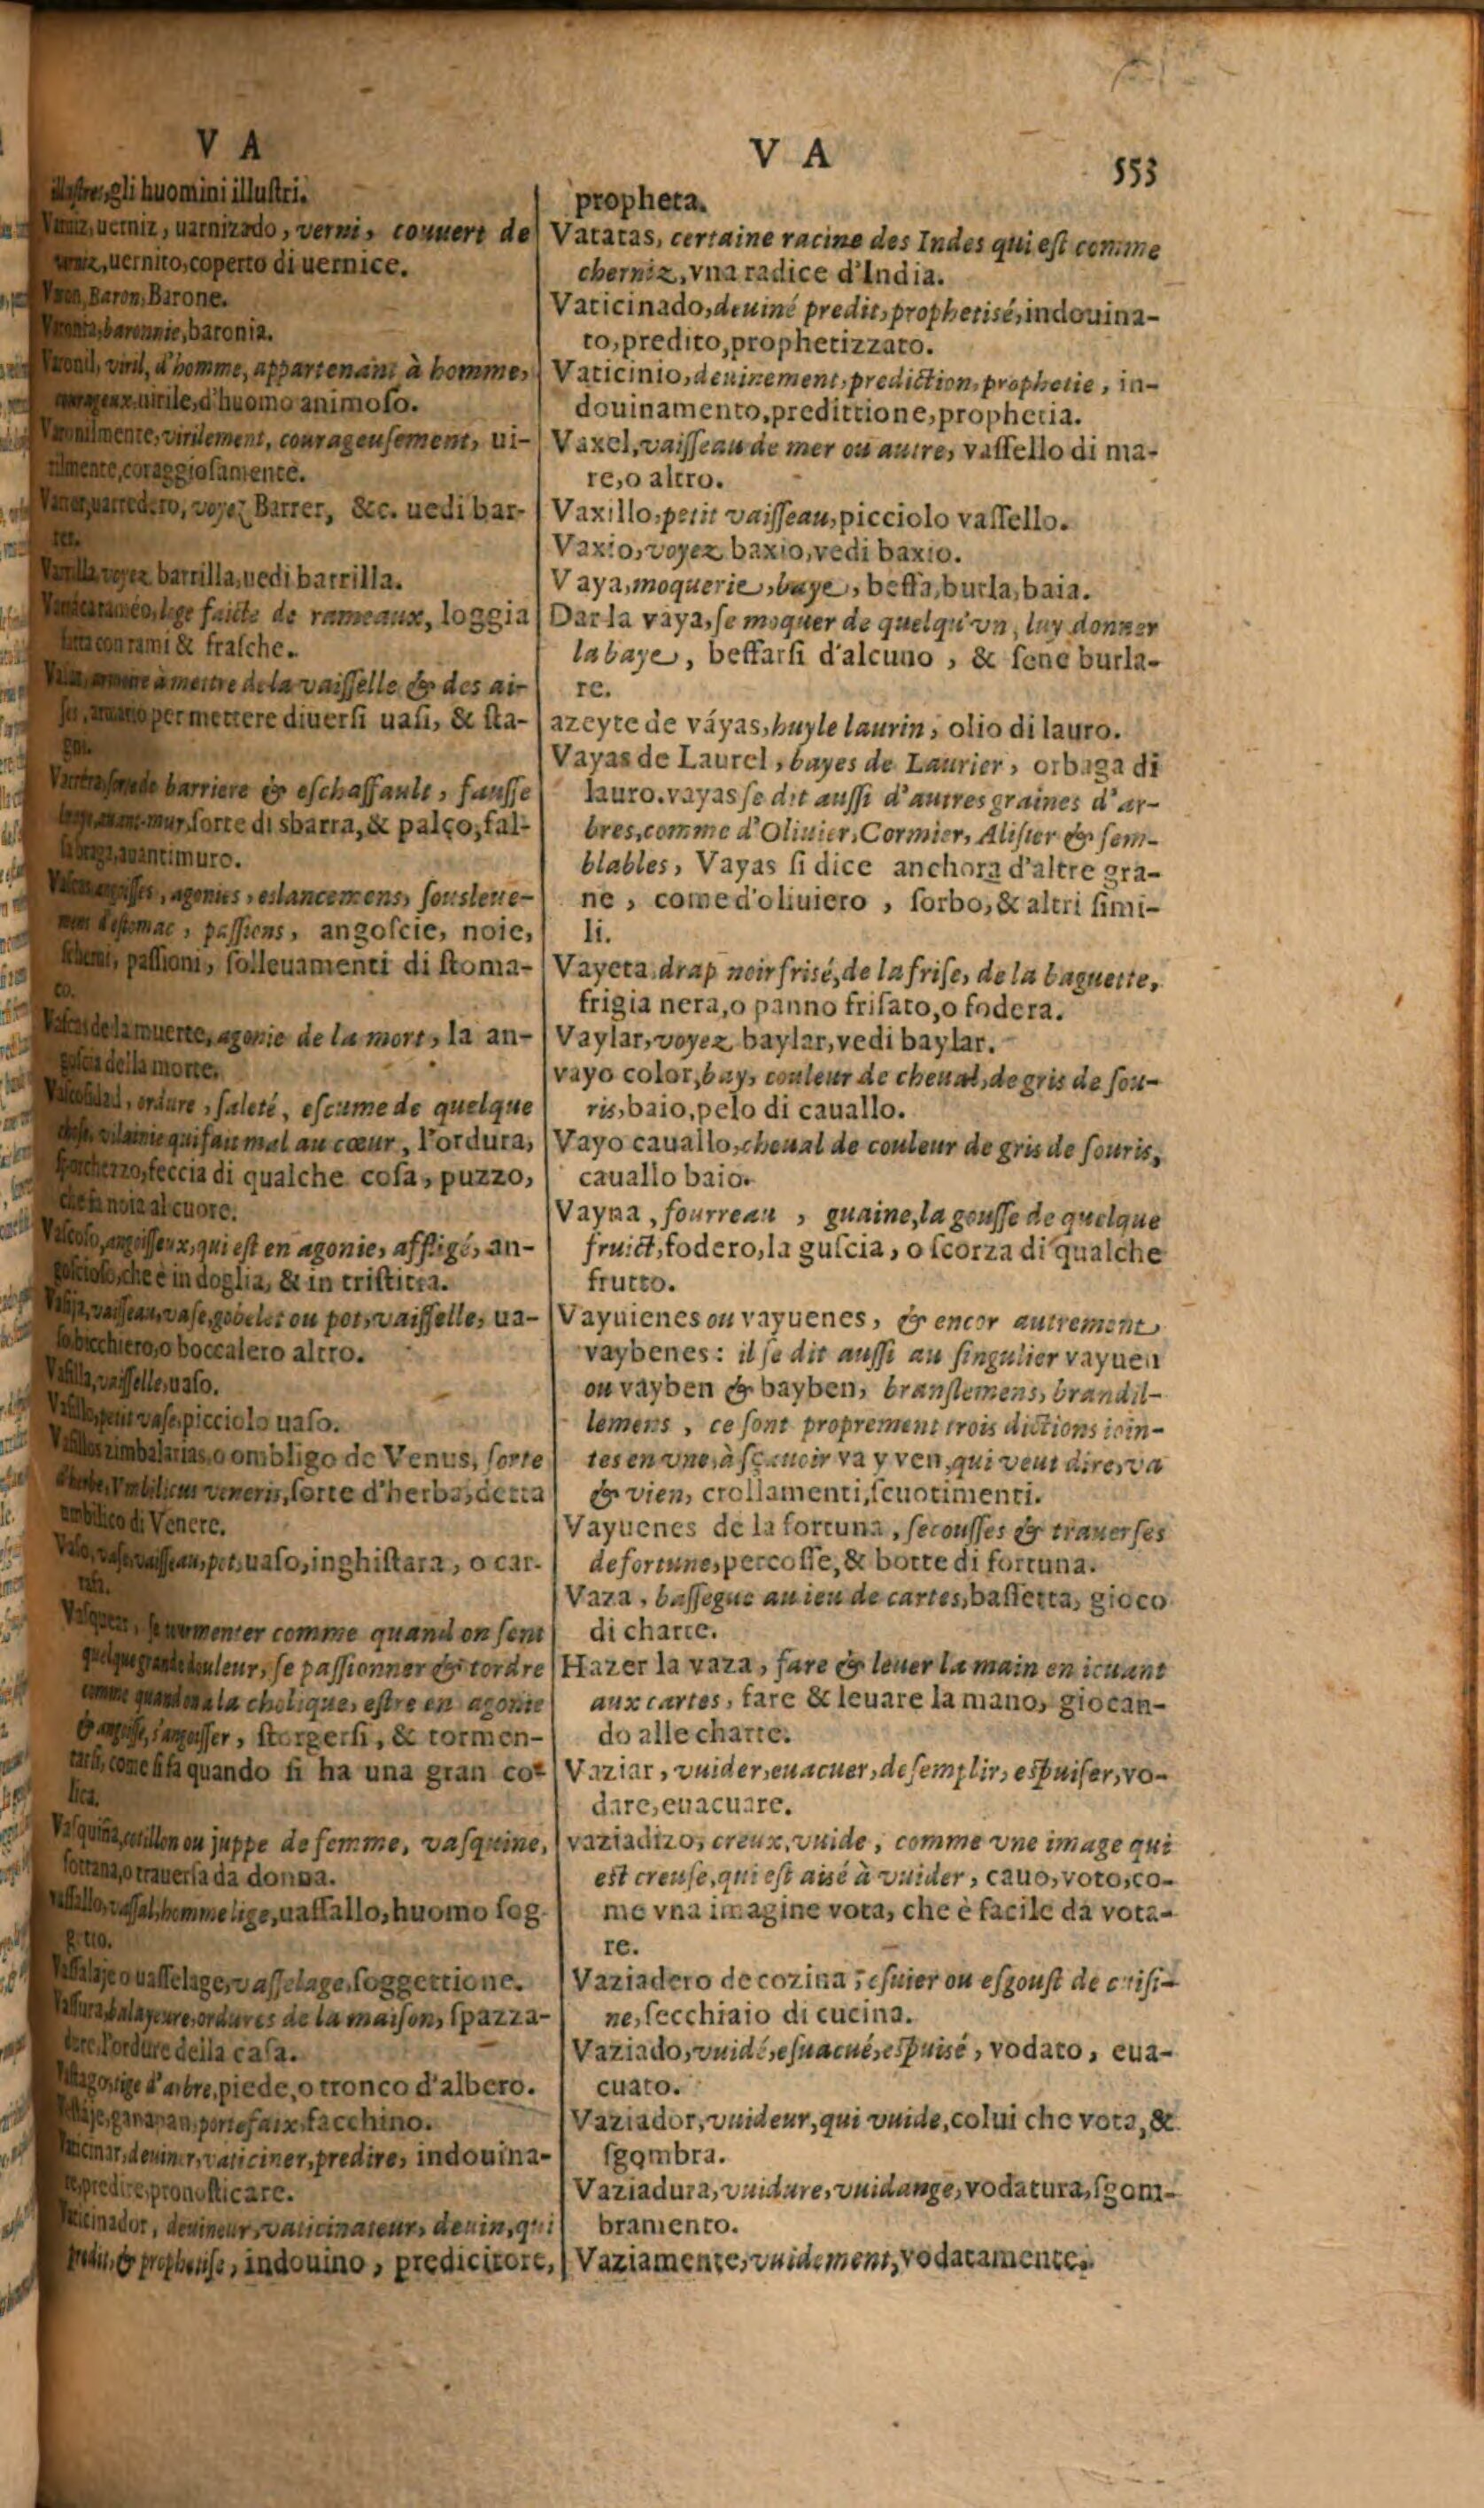 V A
gli huomini illuſtri.
uerniz, uarnizado, verni, couuert de
uernito, coperto di uernice.
Baron, Barone.
baronnie, baronia.
viril, d'homme, appartenant à homme,
uirile, d'huomo animoſo.
virilement, courageuſement, ui-
rilmente, coraggioſamente.
uarredero, voyez Barrer, &c. uedi bar-
rer.
voyez barrilla, uedi barrilla.
loge faicte de rameaux, loggia
con rami & fraſche.
à mettre de la vaiſſelle & des ai-
per mettere diuerſi uaſi, & ſta-
gni.
barriere & eſchaffault, fauſſe
mur, ſorte di sbarra, & palco, fal-
auantimuro.
agonies, eslancemens, ſousleue-
deſtomac, paſſions, angoſcie, noie,
paſſioni, ſolleuamenti di ſtoma-
co.
de la muerte, agonie de la mort, la an-
goſcia della morte.
ordure, ſaleté, eſcume de quelque
vilainie qui fait mal au cœur, l'ordura,
feccia di qualche coſa, puzzo,
che fa noia al cuore.
Vaſcoſo, angoiſſeux, qui eſt en agonie, affligé, an-
goſcioſo, che è in doglia, & in triſtitia.
vaiſſeau, vaſe, gobelet ou pot, vaiſſelle, ua-
ſo bicchiero, o boccalero altro.
Vaſilla, vaiſſelle, uaſo.
petit vaſe, picciolo uaſo.
Vaſillos zimbalarias, o ombligo de Venus, ſorte
d'herbe, Vmbilicus veneris, ſorte d'herba, detta
ombilico di Venere.
Vaſo, vaſe, vaiſſeau, pot, uaſo, inghiſtara, o car-
rafa.
ſe tourmenter comme quand on ſent
quelque grande douleur, ſe paſſionner & tordre
comme quand on a la cholique, eſtre en agonie
& angoiſſe, s'angoiſſer, ſtorgerſi, & tormen-
tarſi, come ſi fa quando ſi ha una gran co-
lica.
Vaſquiña, cotillon ou juppe de femme, vaſquine,
ſottana, o trauerſa da donna.
Vaſſallo, vaſſal, homme lige, uaſſallo, huomo ſog-
getto.
Vaſſalaje o uaſſelage, vaſſelage, ſoggettione.
Vaſſura, balayeure, ordures de la maiſon, ſpazza-
l'ordure della caſa.
tige d'arbre, piede, o tronco d'albero.
ganapan, portefaix, facchino.
Vaticinar, deuiner, vaticiner, predire, indouina-
re, predire, pronoſticare.
Vaticinador, deuineur, vaticinateur, deuin, qui
predit, & propheniſe, indouino, predicitore,
V A
553
propheta.
Vatatas, certaine racine des Indes qui eſt comme
cherniz, vna radice d'India.
Vaticinado, deuiné predit, prophetisé, indouina-
to, predito, prophetizzato.
Vaticinio, deuinement, prediction, prophetie, in-
douinamento, predittione, prophetia.
Vaxel, vaiſſeau de mer ou autre, vaſſello di ma-
re, o altro.
Vaxillo, petit vaiſſeau, picciolo vaſſello.
Vaxio, voyez baxio, vedi baxio.
Vaya, moquerie, baye, beffa, burla, baia.
Dar la vaya, ſe moquer de quelqu'vn, luy donner
la baye, beffarſi d'alcuno, & ſene burla-
re.
azeyte de váyas, huyle laurin, olio di lauro.
Vayas de Laurel, bayes de Laurier, orbaga di
lauro. vayas ſe dit auſſi d'autres graines d'ar-
bres, comme d'Oliuier, Cormier, Aliſier & ſem-
blables, Vayas ſi dice anchora d'altre gra-
ne, come d'oliuiero, ſorbo, & altri ſimi-
li.
Vayeta, drap noir friſé, de la friſe, de la baguette,
frigia nera, o panno friſato, o fodera.
Vaylar, voyez baylar, vedi baylar.
vayo color, bay, couleur de cheual, de gris de ſou-
ris, baio, pelo di cauallo.
Vayo cauallo, cheual de couleur de gris de ſouris,
cauallo baio.
Vayna, fourreau, guaine, la gouſſe de quelque
fruict, fodero, la guſcia, o ſcorza di qualche
frutto.
Vayuienes ou vayuenes, & encor autrement
vaybenes: il ſe dit auſſi au ſingulier vayuen
ou vayben & bayben, branſlemens, brandil-
lemens, ce ſont proprement trois dictions ioin-
tes en vne, à ſçauoir va y ven, qui veut dire, va
& vien, crollamenti, ſcuotimenti.
Vayuenes de la fortuna, ſecouſſes & trauerſes
de fortune, percoſſe, & botte di fortuna.
Vaza, baſſegue au ieu de cartes, baſſetta, gioco
di charte.
Hazer la vaza, fare & leuer la main en iouant
aux cartes, fare & leuare la mano, giocan-
do alle charte.
Vaziar, vuider, euacuer, deſemplir, eſpuiſer, vo-
dare, euacuare.
vaziadizo, creux, vuide, comme vne image qui
eſt creuſe, qui eſt aisé à vuider, cauo, voto, co-
me vna imagine vota, che è facile da vota-
re.
Vaziadero de cozina, eſuier ou eſgouſt de cuiſi-
ne, ſecchiaio di cucina.
Vaziado, vuidé, eſuacué, eſpuisé, vodato, eua-
cuato.
Vaziador, vuideur, qui vuide, colui che vota, &
ſgombra.
Vaziadura, vuidure, vuidange, vodatura, ſgom-
bramento.
Vaziamente, vuidement, vodatamente.